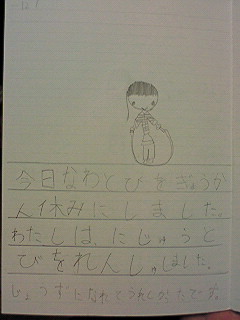 今日なわとびをぎょうか
ん休みにしました。
わたしは、にじゅうと
びをれんしゅしました。
じょうずになれてうれしかったです。